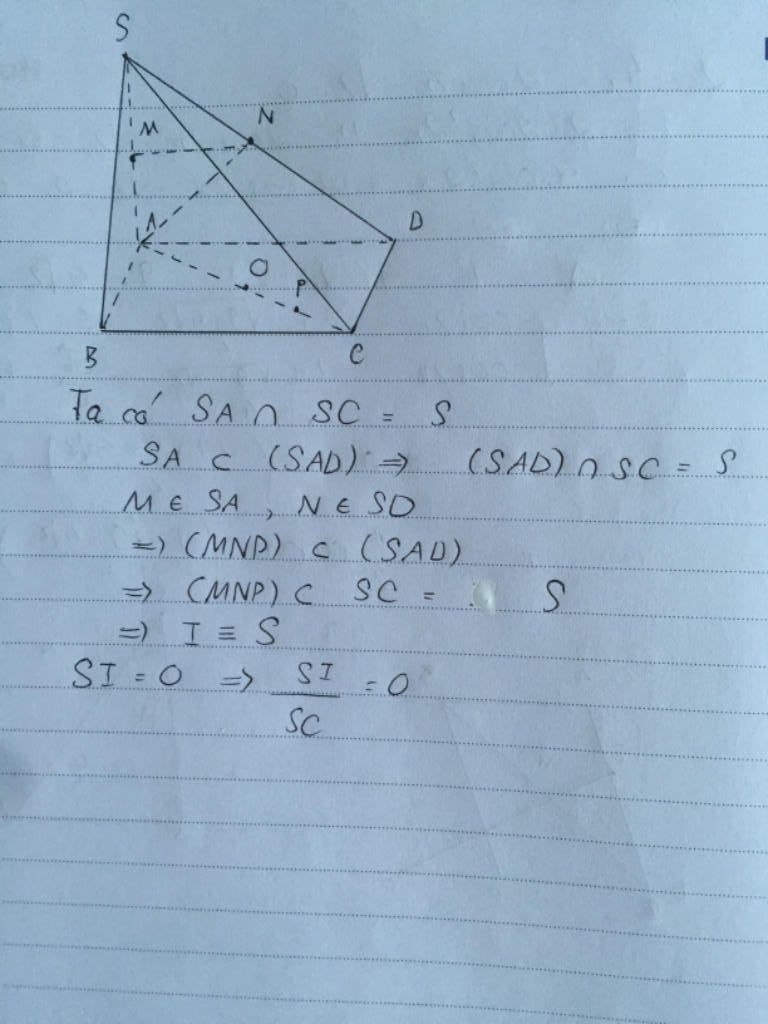 S
M N
A D
O P
B C
Ta có SA ∩ SC = S
SA ⊂ (SAD) ⇒ (SAD) ∩ SC = S
M ∈ SA , N ∈ SD
⇒ (MNP) ⊂ (SAD)
⇒ (MNP) ⊂ SC = S
⇒ I ≡ S
SI = 0 ⇒ SI/SC = 0